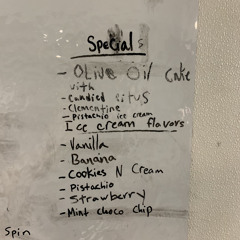 Specials
- Olive Oil Cake
with
- Candied citus
- Clementine
- Pistachio ice cream
Ice cream flavors
- Vanilla
- Banana
- Cookies N Cream
- Pistachio
- Strawberry
- Mint choco chip
Spin